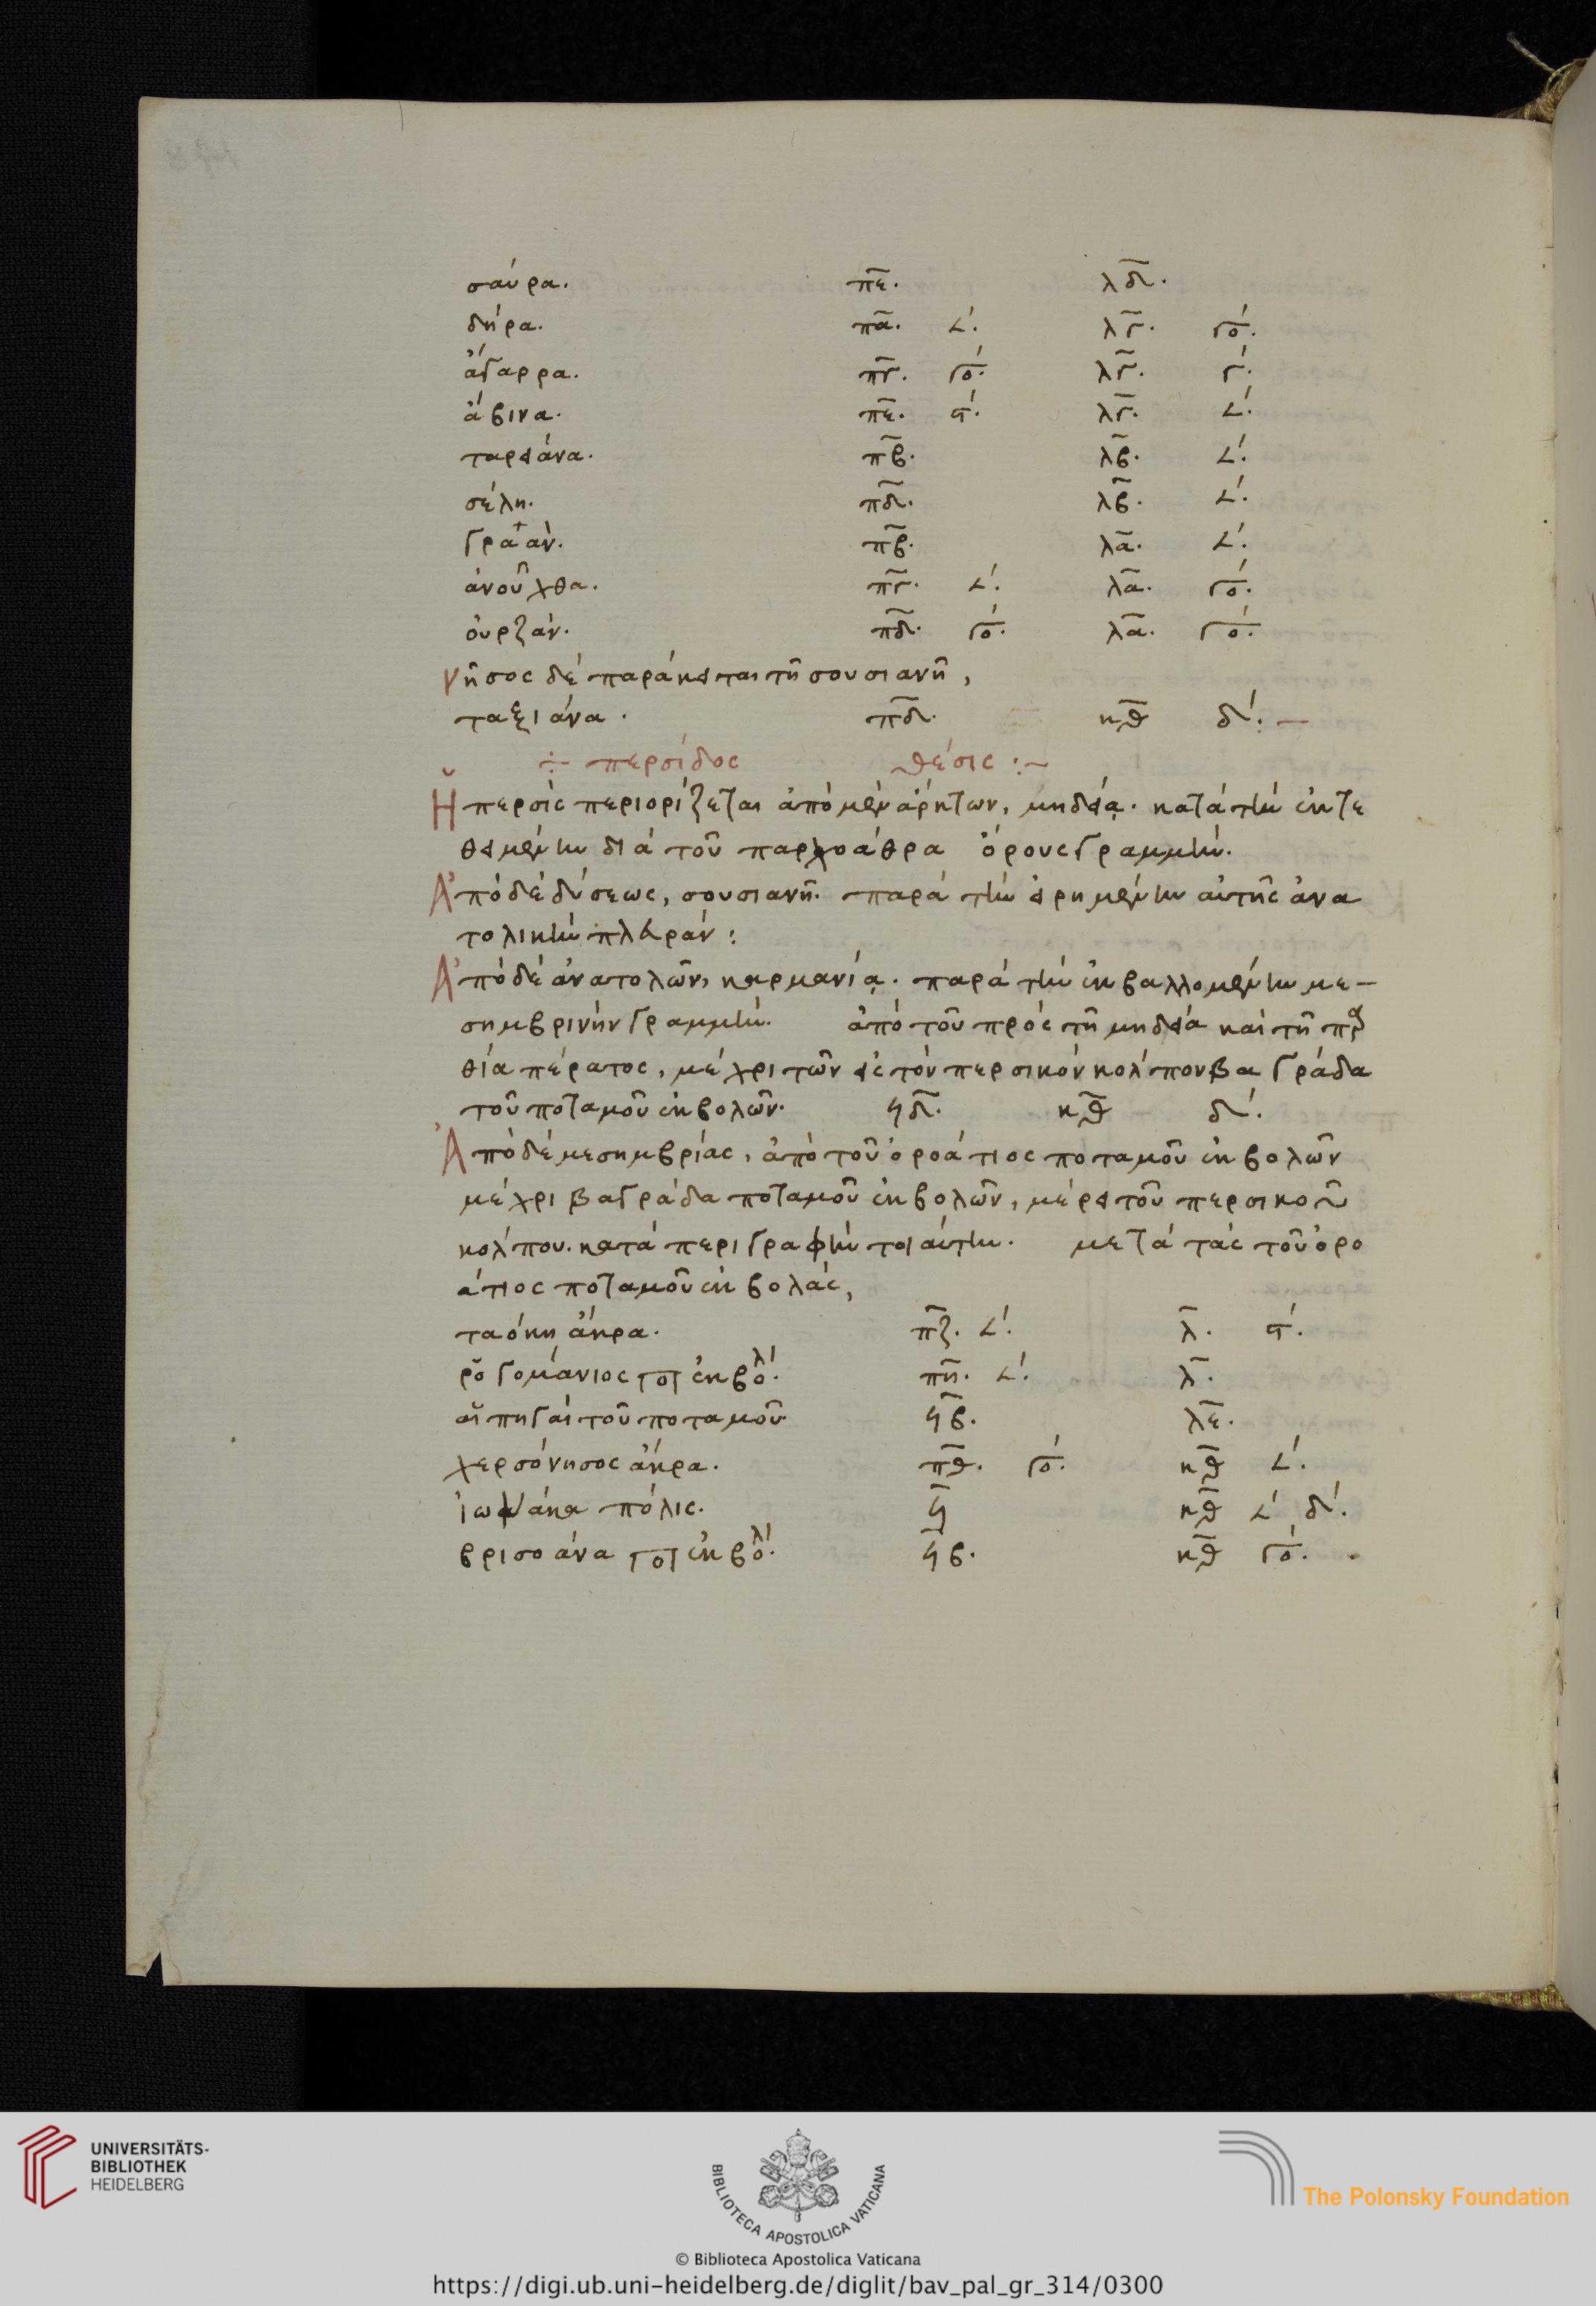 σαύρα. πε. λδ.
δήρα. πα. 𐅵. λγ. γο.
ἄγαρρα. πγ. γο. λγ. γ.
ἄβινα. πε. ϛ. λγ. 𐅵.
ταρειάνα. πβ. λβ. 𐅵.
σέλη. πδ. λβ. 𐅵.
γραὰν. πβ. λα. 𐅵.
ἀνοῦχθα. πγ. 𐅵. λα. γο.
οὐρζάν. πδ. γο. λα. γο.
νῆσος δὲ παράκειται τῆ σουσιανῆ,
ταξιάνα. πδ. κθ δ:
÷ περσίδος θέσις:~
Ἡ περσὶς περιορίζεται ἀπὸ μὲν ἄρκτων, μηδείᾳ. κατὰ τὴν ἐκτε
θειμένην διὰ τοῦ παρχοάθρα ὄρους γραμμὴν.
Ἀπὸ δὲ δύσεως, σουσιανῆ. παρὰ τὴν εἰρημένην αὐτῆς ἀνα
τολικὴν πλευράν:
Ἀπὸ δὲ ἀνατολῶν, καρμανίᾳ. παρὰ τὴν ἐκβαλλομένην με-
σημβρινὴν γραμμὴν. ἀπὸ τοῦ πρὸς τῆ μηδείᾳ καὶ τῆ παρ
θίᾳ πέρατος, μέχρι τῶν εἰς τὸν περσικὸν κόλπον βαγράδα
τοῦ ποταμοῦ ἐκβολῶν. ϟδ. κθ δ.
Ἀπὸ δὲ μεσημβρίας, ἀπὸ τοῦ ὀροάτιος ποταμοῦ ἐκβολῶν
μέχρι βαγράδα ποταμοῦ ἐκβολῶν, μέρει τοῦ περσικοῦ
κόλπου. κατὰ περιγραφὴν τοιαύτην. μετὰ τὰς τοῦ ὀρο
άτιος ποταμοῦ ἐκβολὰς,
ταόκη ἄκρα. πζ. 𐅵. λ. ϛ.
ῥογομάνιος ποτ ἐκβολ. πη. 𐅵. λ.
αἱ πηγαὶ τοῦ ποταμοῦ ϟβ. λε.
χερσόνησος ἄκρα. πθ. γο. κθ 𐅵.
ἰωνάκα πόλις. ϟ κθ 𐅵 δ.
βρισοάνα ποτ ἐκβολ. ϟβ. κθ γο.
UNIVERSITÄTS-
BIBLIOTHEK
HEIDELBERG
BIBLIOTECA APOSTOLICA VATICANA
The Polonsky Foundation
© Biblioteca Apostolica Vaticana
https://digi.ub.uni-heidelberg.de/diglit/bav_pal_gr_314/0300